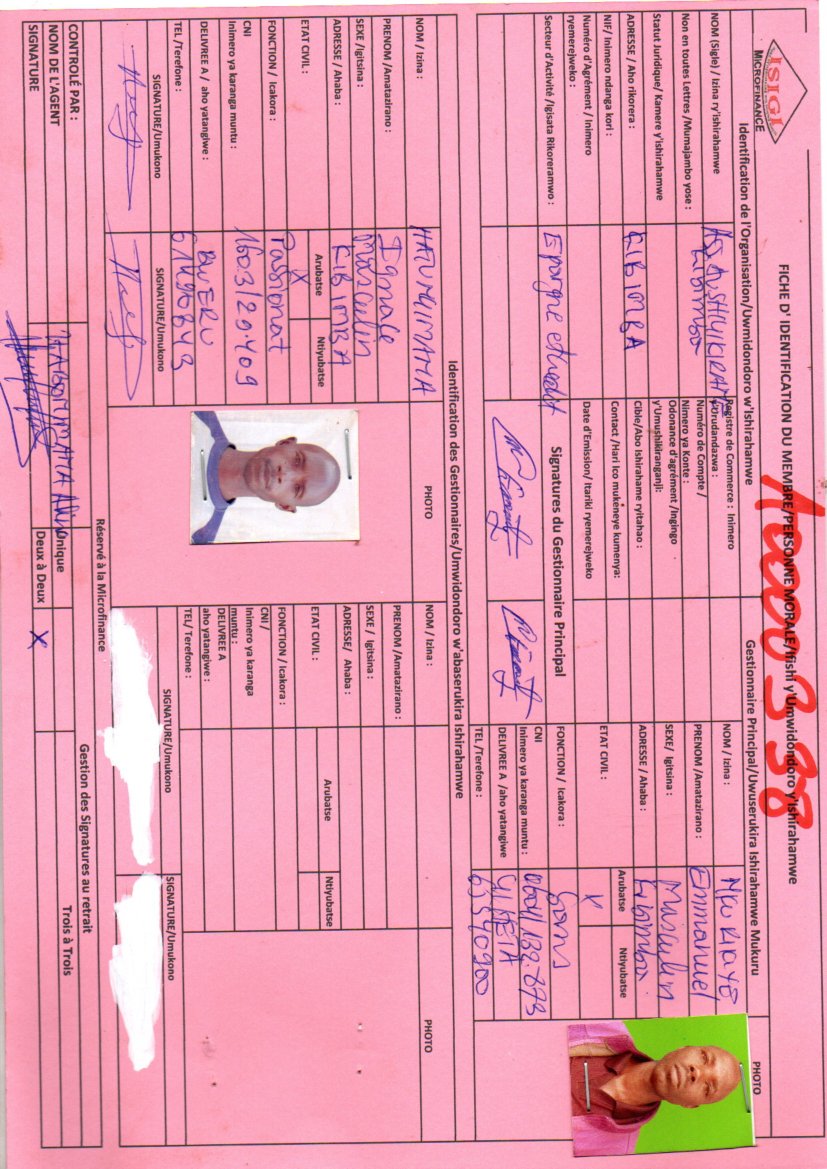 ISIGI
MICROFINANCE
FICHE D' IDENTIFICATION DU MEMBRE/PERSONNE MORALE/Ifishi y'Umwidondoro y'Ishirahamwe
338
Identification de l'Organisation/Uwmidondoro w'Ishirahamwe
Gestionnaire Principal/Uwuserukira Ishirahamwe Mukuru
PHOTO
NOM (Sigle) / Izina ry'ishirahamwe
Kibimba
Registre de Commerce : Inimero y'Urudandazwa :
NOM / Izina :
Non en toutes Lettres /Mumajambo yose :
Numéro de Compte / Nimero ya Konte :
PRENOM /Amatazirano :
Emmanuel
Statut Juridique/ Kamere y'ishirahamwe
Odonance d'agrément /Ingingo y'Umushikiranganji:
SEXE/ Igitsina :
Masculin
ADRESSE / Aho rikorera :
KIBIMBA
Cible/Abo Ishirahame ryitahao :
ADRESSE / Ahaba :
Kibimba
NIF/ Inimero ndanga kori :
Contact /Hari Ico mukeneye kumenya:
ETAT CIVIL :
Arubatse
Ntiyubatse
X
Numéro d'Agrément / Inimero ryemerejweko :
Date d'Emission/ Itariki ryemerejweko
FONCTION / Icakora :
Secteur d'Activité /Igisata Rikoreramwo :
Epargne
Signatures du Gestionnaire Principal
CNI
Inimero ya karanga muntu :
DELIVREE A /aho yatangiwe
TEL /Terefone :
Identification des Gestionnaires/Umwidondoro w'abaserukira Ishirahamwe
NOM / Izina :
HATUNGIMANA
PHOTO
NOM / Izina :
PHOTO
PRENOM /Amatazirano :
Ignace
PRENOM/Amatazirano :
SEXE /Igitsina :
Masculin
SEXE / Igitsina :
ADRESSE / Ahaba :
KIBIMBA
ADRESSE/ Ahaba :
ETAT CIVIL :
Arubatse
Ntiyubatse
X
ETAT CIVIL :
Arubatse
Ntiyubatse
FONCTION / Icakora :
FONCTION / Icakora :
CNI
Inimero ya karanga muntu :
1603/29.409
CNI /
Inimero ya karanga muntu :
DELIVREE A / aho yatangiwe :
BWERU
DELIVREE A
aho yatangiwe :
TEL /Terefone :
TEL/ Terefone :
SIGNATURE/Umukono
SIGNATURE/Umukono
SIGNATURE/Umukono
SIGNATURE/Umukono
Réservé à la Microfinance
CONTROLÉ PAR :
Gestion des Signatures au retrait
NOM DE L'AGENT
Unique
SIGNATURE
Deux à Deux
X
Trois à Trois